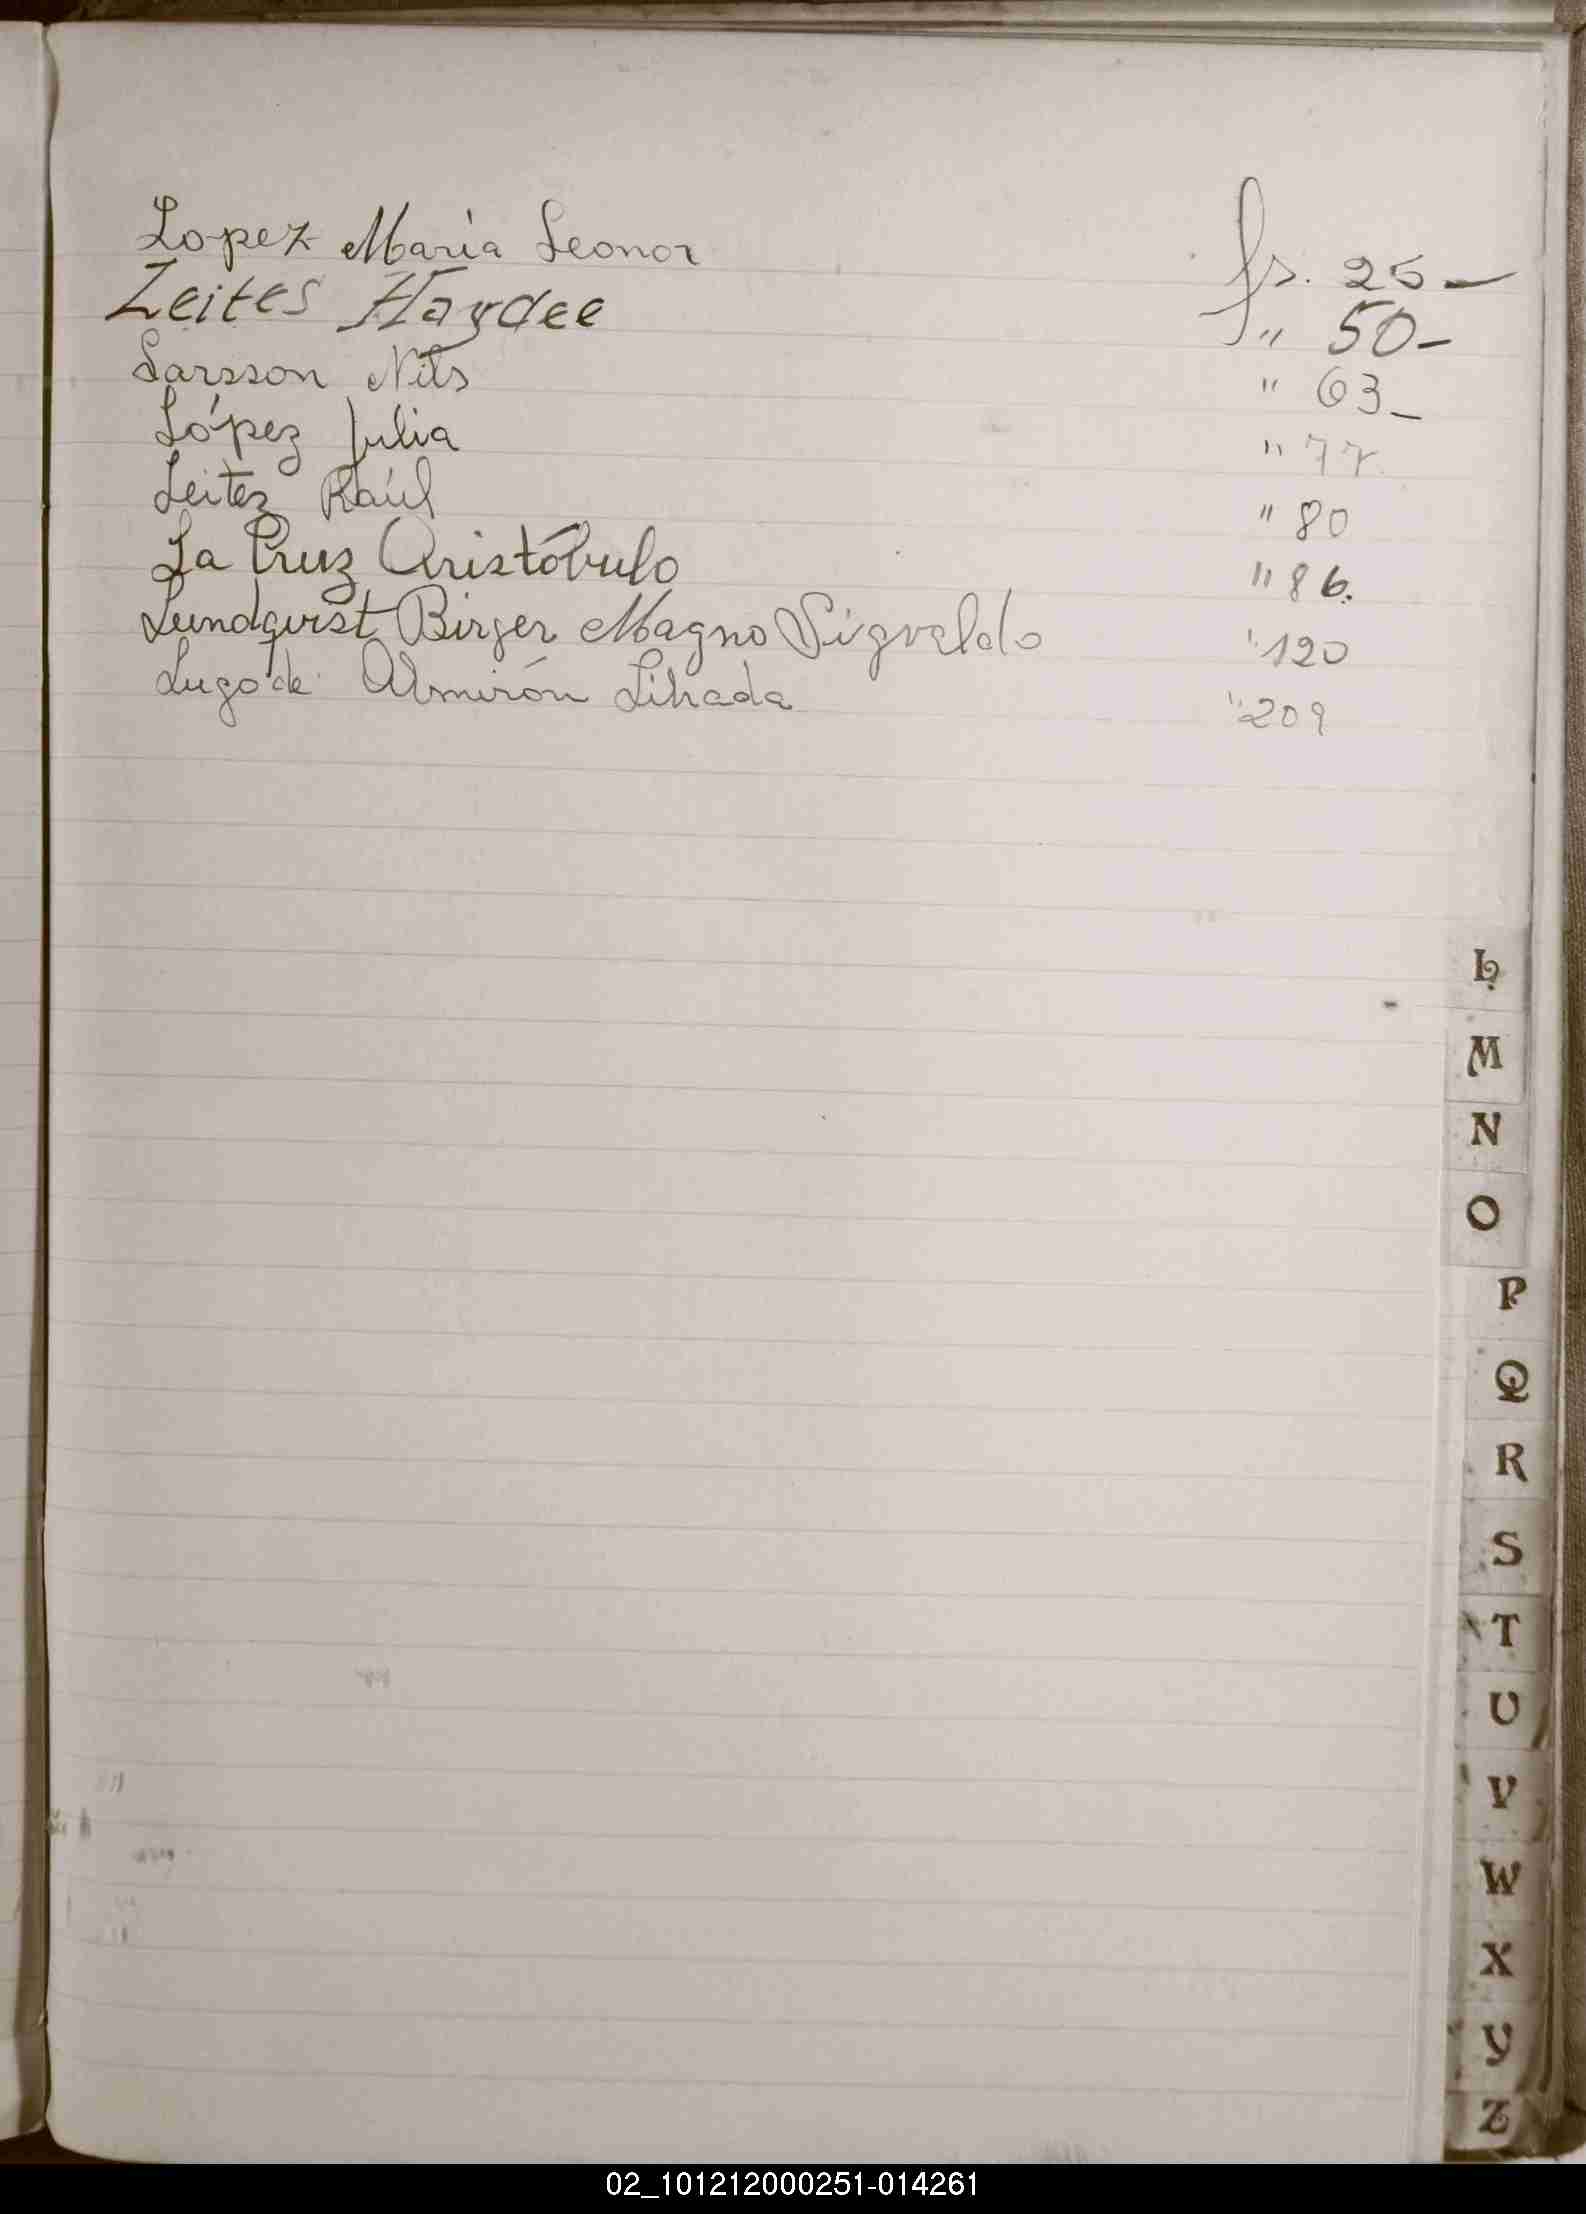 Lopez María Leonor fs. 25 —
Leites Haydee " 50 -
Larsson Nils " 63 -
López Julia " 77
Leitez Raúl " 80
La Cruz Aristóbulo " 86.
Lundqvist Birger Magno Sigvaldo " 120
Lugo de Almirón " 209
L
M
N
O
P
Q
R
S
T
U
V
W
X
Y
Z
02_101212000251-014261